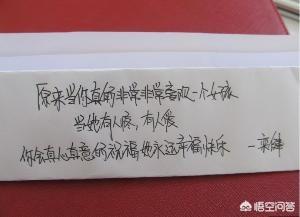 原来当你真的非常非常喜欢一个女孩
当她有人疼，有人爱
你会真心真意的祝福她永远幸福快乐 —奕鲜
悟空问答